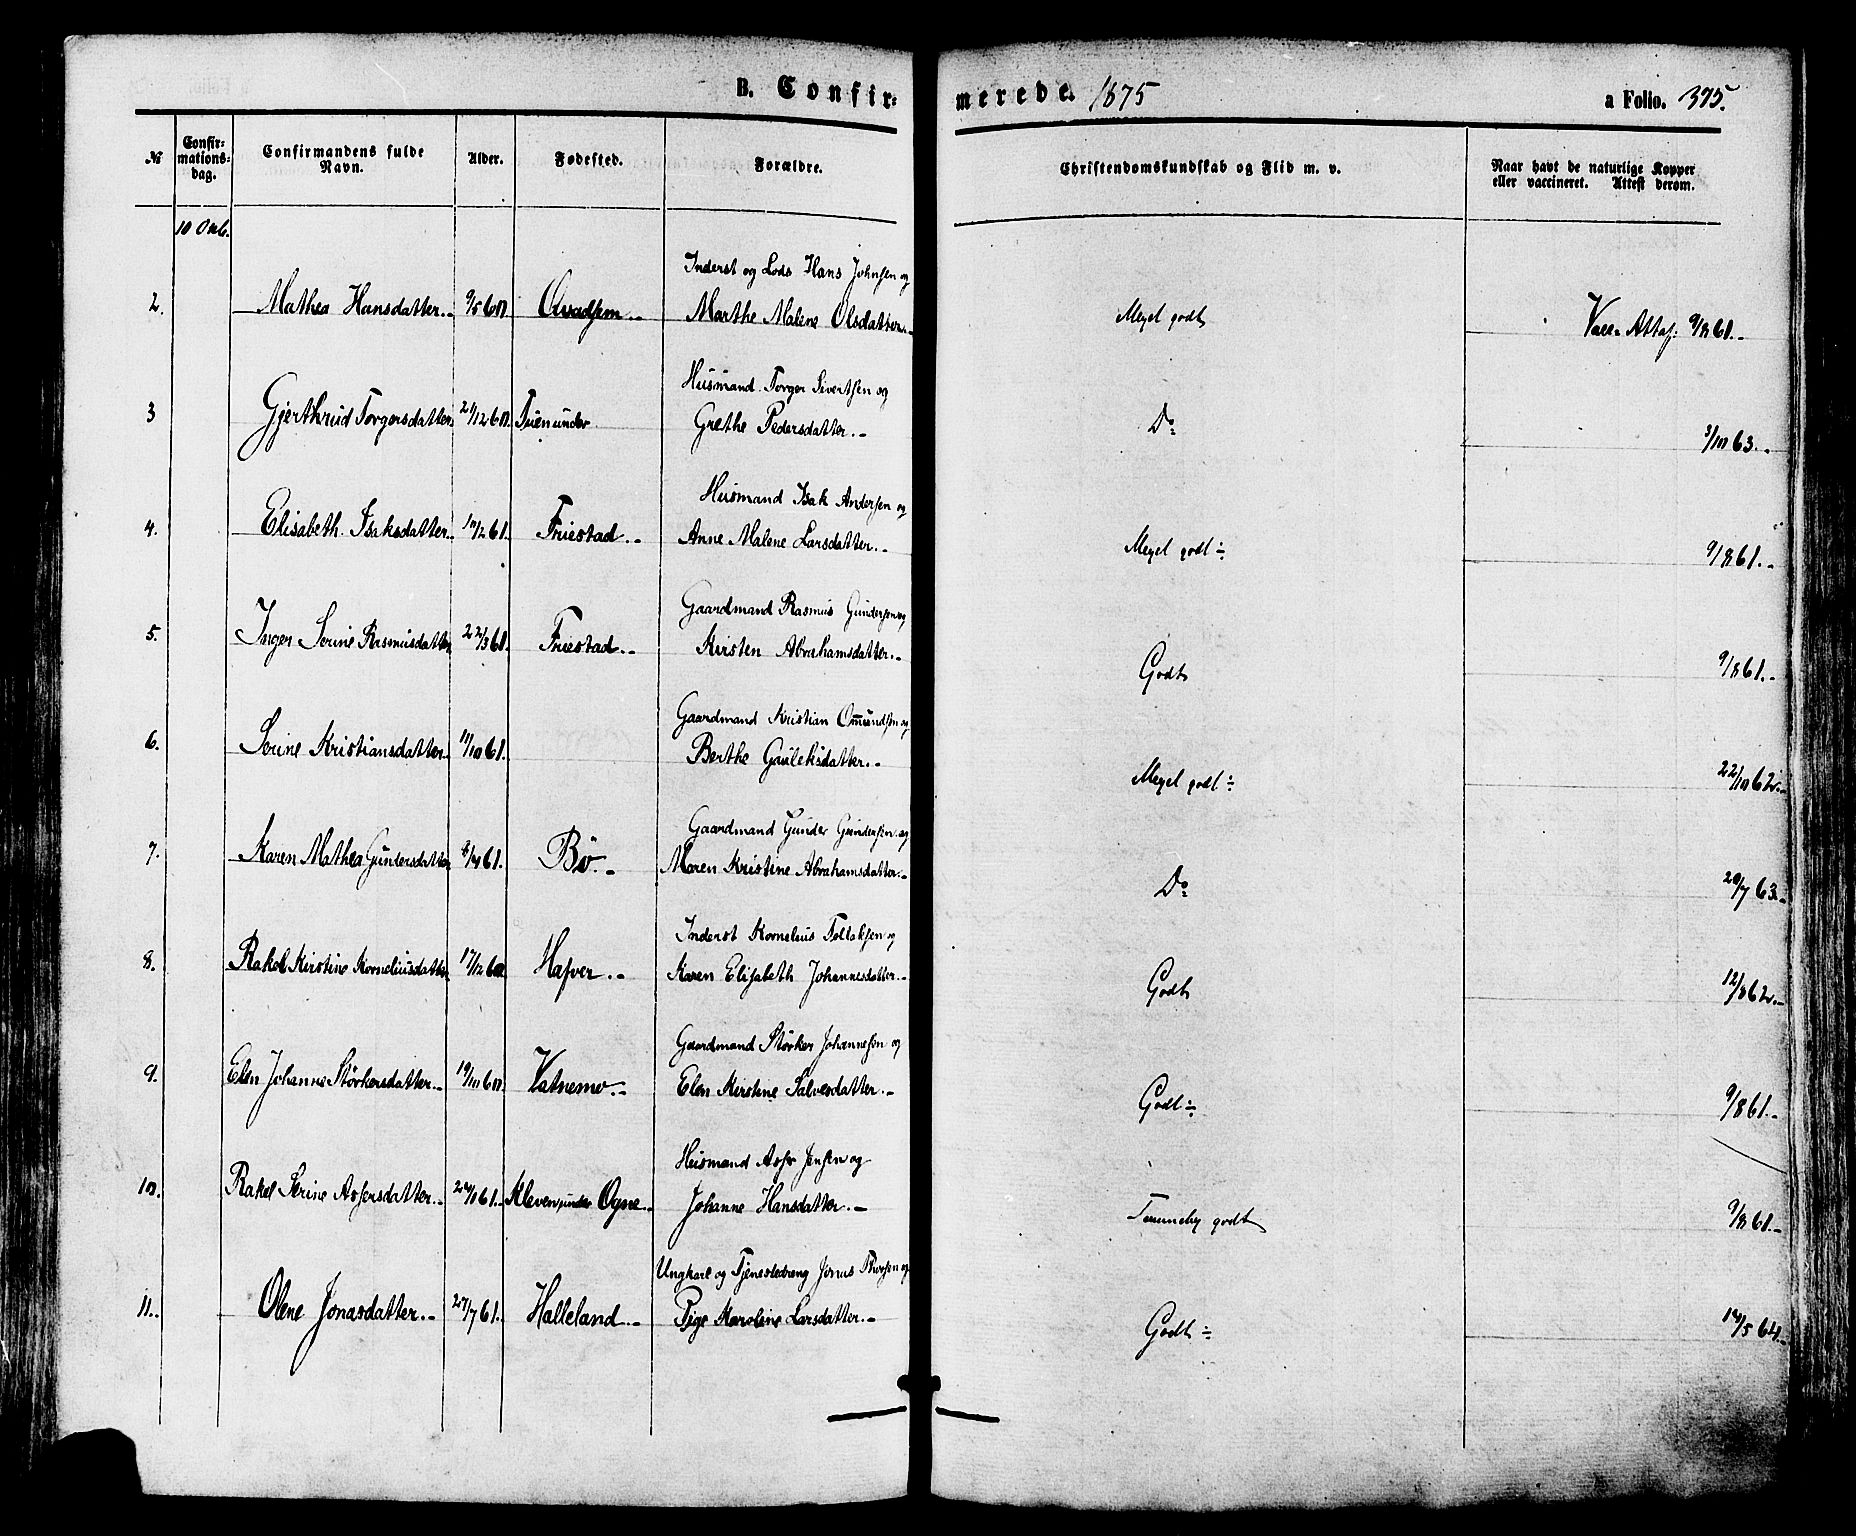 B. Confirmerede. 1875
a Folio. 375.
№
Confirmationsdag.
Confirmandens fulde Navn.
Alder.
Fødested.
Forældre.
Christendomskundskab og Flid m. v.
Naar havt de naturlige Kopper eller vaccineret. Attest derom.
2. Mathea Hansdatter.- 9/5 60 Inderst og Lods Hans Johnsen og
Marthe Malene Olsdatter.- Meget godt 9/8 61.-
3 Gjerthrud Torgersdatter 21/12 60 Husmand Torger Sivertsen og
Grethe Pedersdatter.- Do 3/10 63.-
4. Elisabeth Isaksdatter.- 10/12 61. Friestad.- Husmand Isak Andersen og
Anne Malene Larsdatter.- Meget godt ÷ 9/8 61.-
5. Inger Serine Rasmusdatter 22/3 61. Friestad.- Gaardmand Rasmus Gundersen og
Kirsten Abrahamsdatter.- Godt 9/8 61.-
6. Serine Kristiansdatter 11/10 61. Gaardmand Kristian Omundsen og
Berthe Gauleksdatter.- Meget godt ÷ 22/10 62.-
7. Karen Mathea Gundersdatter 61. Bø.- Gaardmand Gunder Gundersen og
Maren Kristine Abrahamsdatter.- Do 20/7 63.-
8. Rakel Kirstine Korneliusdatter 17/12 60 Hafver.- Inderst Kornelius Tollaksen og
Karen Elisabeth Johannesdatter.- Godt 12/8 62.-
9. Elen Johanne Størkersdatter.- 19/10 60 Vatnemo.- Gaardmand Størker Johannesen og
Elen Kirstine Salvesdatter.- Godt ÷ 9/8 61.-
10. Rakel Serine Asfersdatter.- 61. Kleven under Ogne.- Husmand Asfer Jensen og
Johanne Hansdatter.- Temmelig godt 9/8 61.-
11. Olene Jonasdatter.- 61. Halleland.- Ungkarl og Tjenestedreng Jonas Thorsen og
Pige Karoline Larsdatter.- Godt ÷ 64.-